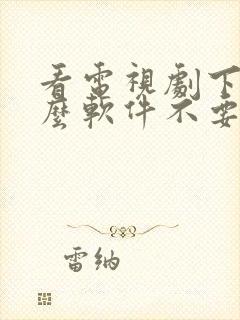 看電視劇下
麼軟件不要
雷納